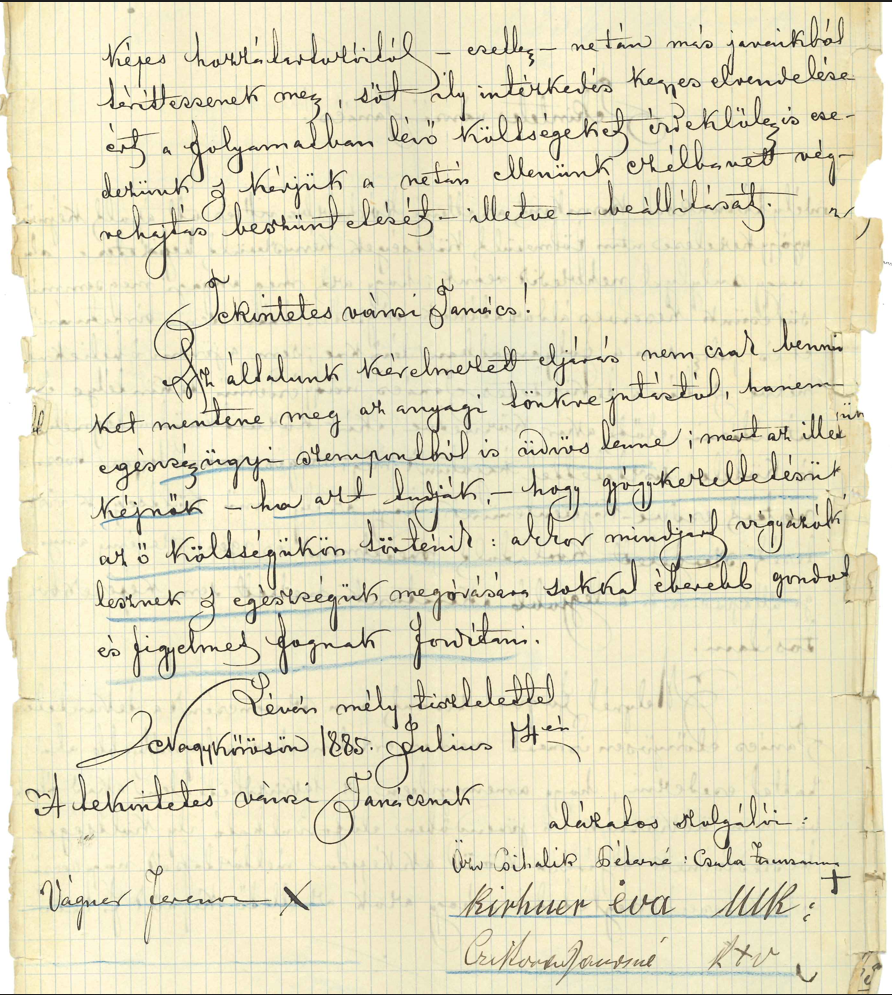 képes hozzátartozóitól – esetleg – netán más javaikból
téríttessenek meg, sőt ily intézkedés kegyes elrendelése
ért a folyamatban lévő költségeket érdeklőleg is ese-
dezünk s kérjük a netán ellenünk czélba vett vég-
rehajtás beszüntetését – illetve – beállítását.
Tekintetes városi Tanács!
Az általunk kérelmezett eljárás nem csak bennün
ket mentene meg az anyagi tönkre jutástól, hanem
egészségügyi szempontból is üdvös lenne; mert az illető
kéjnők – ha azt tudják, – hogy gyógykezeltetésük
az ő költségükön történik: akkor mindjárt vigyázók
lesznek s egészségük megóvására sokkal éberebb gondot
és figyelmet fognak fordítani.
Lévén mély tisztelettel
Nagykőrösön 1885. Julius 14én
A tekintetes városi Tanácsnak
alázatos szolgálói:
Özv Csihalik Péterné: Csala
Vágner Ferencz X
Kirhner éva MK: